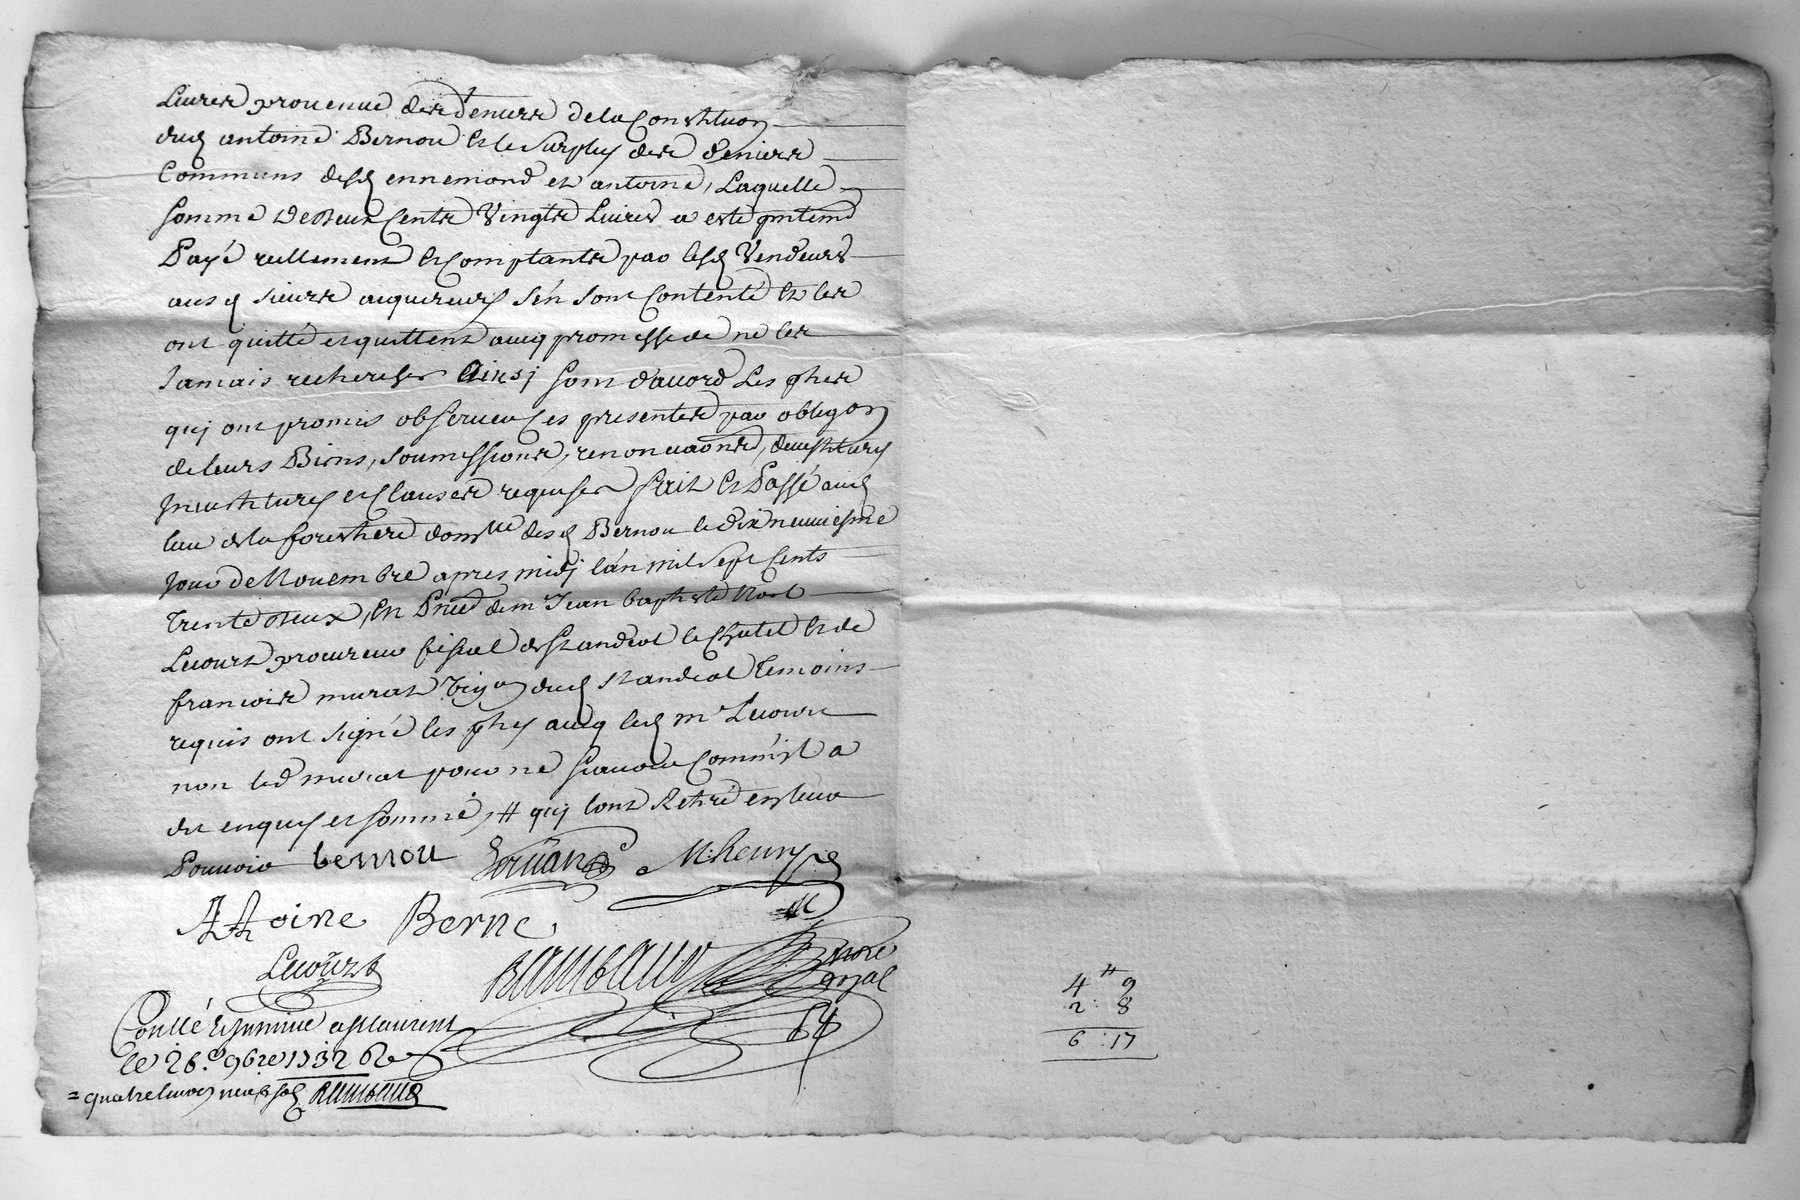 Livres provenue des deniers de la Constituon
dud antoine Bernou et le surplus des deniers
Communs desd ennemond et antoine, Laquelle
somme de deux Cents Vingts Livres a esté
Payé reellement et comptants par lesd Vendeurs
ausd sieurs acquereurs s'en sont contenté et les
ont quitté et quittent avec promesse de ne les
Jamais rechercher Ainsj sont d'accord Les pties
quj ont promis observer Ces presentes par obligaon
de leurs Biens, soumissions, renonciaons, devestitures
Investitures et Clauses requises fait et Passé aud
lieu de la forestiere domlle desd Bernou le dix neuviesme
Jour de Novembre apres midj l'an mil sept Cents
Trente deux, En Pnce de m Jean baptiste Noel
Lecourt procureur fiscal de St andeol le Chatel et de
francois murat dud St andeol temoins
requis ont signé les pties avec led mr Lecourt
non led murat pour ne sçavoir Comm'il a
dit enquis et sommé, # quj l'ont Retiré en leur
Pouvoir bernou M: heury
AAtoine Berne.
Lecourt Rambaud Nore
royal
Conllé et Insinué a St Laurent
le 26.e 9bre 1732
= quatre livres neuf sols Rambaud
4 # 9
2 : 8
6 : 17